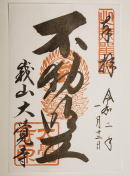 奉拝
令和二年
一月十二日
不動明王
峩山大覚寺